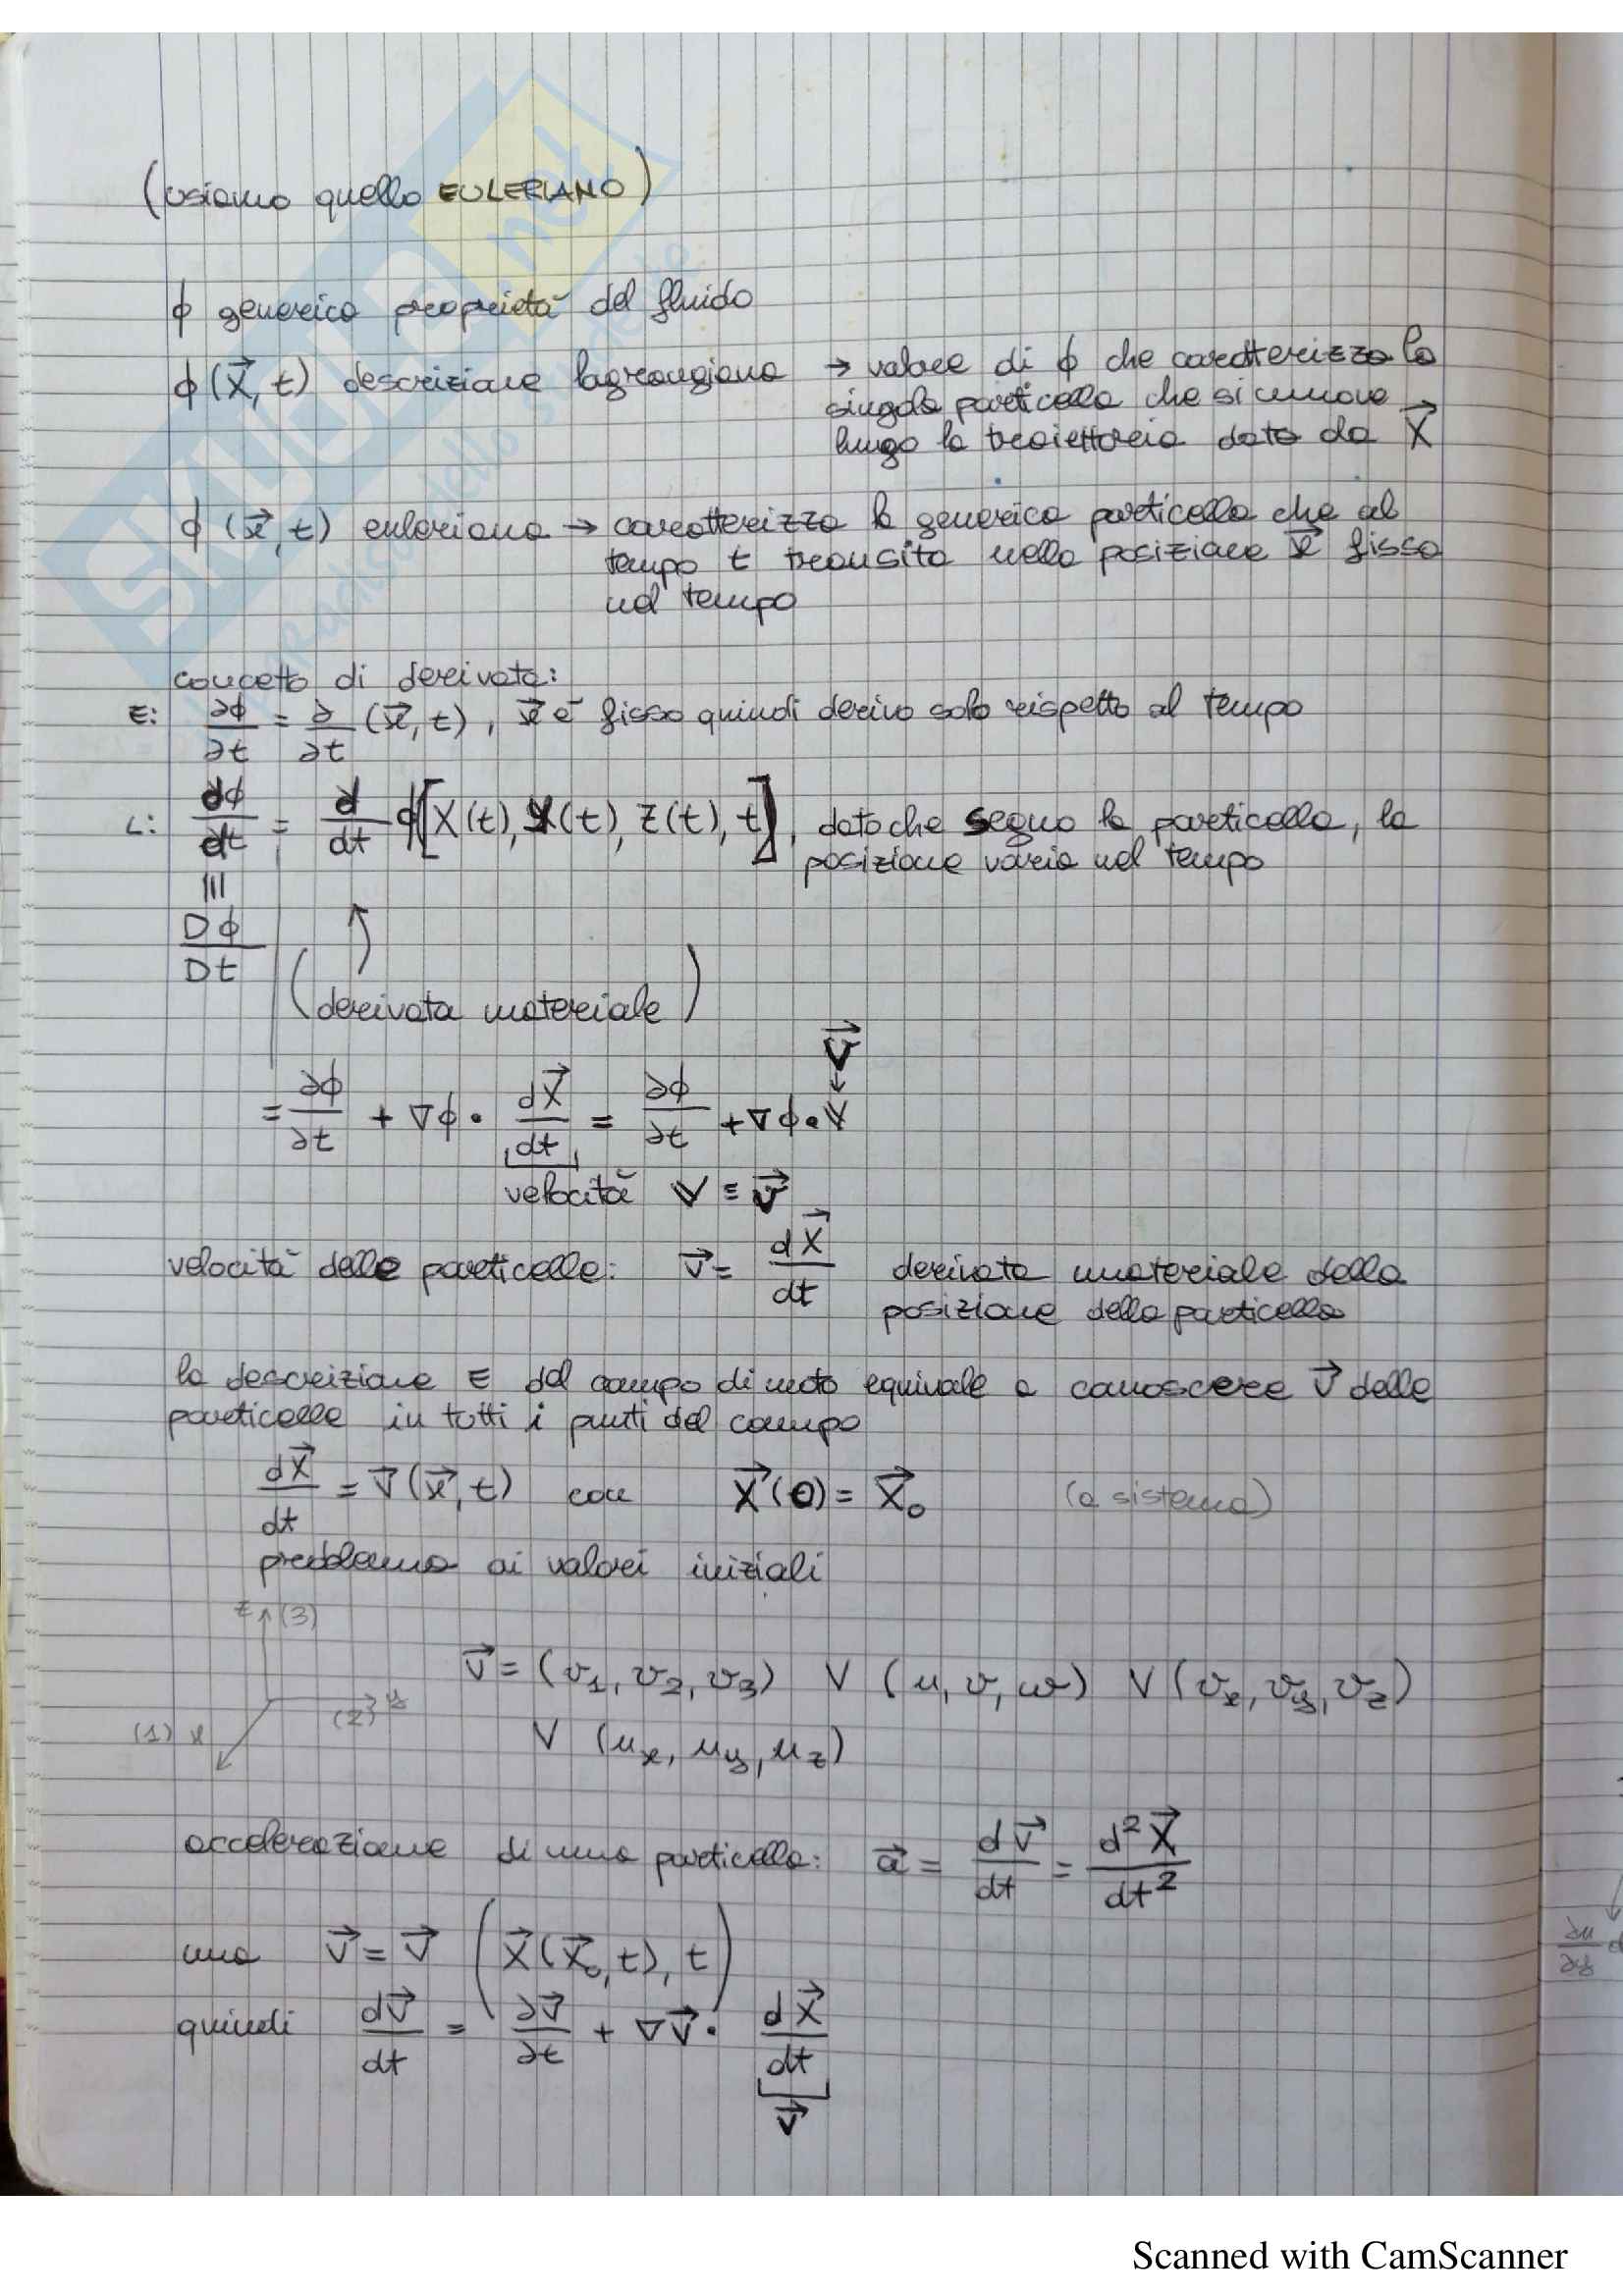 (usiamo quello EULERIANO)
ϕ generica proprietà del fluido
ϕ(X⃗, t) descrizione lagrangiana → valore di ϕ che caratterizza la
singola particella che si muove
lungo la traiettoria data da X⃗
ϕ(x⃗, t) euleriana → caratterizza la generica particella che al
tempo t transita nella posizione x⃗ fissa
nel tempo
concetto di derivata:
E: ∂ϕ/∂t = ∂/∂t (x⃗, t), x⃗ è fisso quindi derivo solo rispetto al tempo
L: dϕ/dt = d/dt ϕ[X(t), Y(t), Z(t), t], dato che seguo la particella, la
posizione varia nel tempo
≡
Dϕ/Dt
(derivata materiale)
= ∂ϕ/∂t + ∇ϕ · dX⃗/dt = ∂ϕ/∂t + ∇ϕ · V → V⃗
velocità V ≡ v⃗
velocità delle particelle: v⃗ = dX⃗/dt derivata materiale della
posizione della particella
la descrizione E del campo di moto equivale a conoscere v⃗ delle
particelle in tutti i punti del campo
dX⃗/dt = v⃗(x⃗, t) con X⃗(0) = X⃗₀ (a sistema)
problema ai valori iniziali
z (3)
y (2)
(1) x
v⃗ = (v₁, v₂, v₃) V (u, v, w) V (vₓ, v_y, v_z)
V (uₓ, u_y, u_z)
accelerazione di una particella: a⃗ = dv⃗/dt = d²X⃗/dt²
ma v⃗ = v⃗ (X⃗(X⃗₀, t), t)
quindi dv⃗/dt = ∂v⃗/∂t + ∇v⃗ · dX⃗/dt
v⃗
∂u/∂y
Scanned with CamScanner